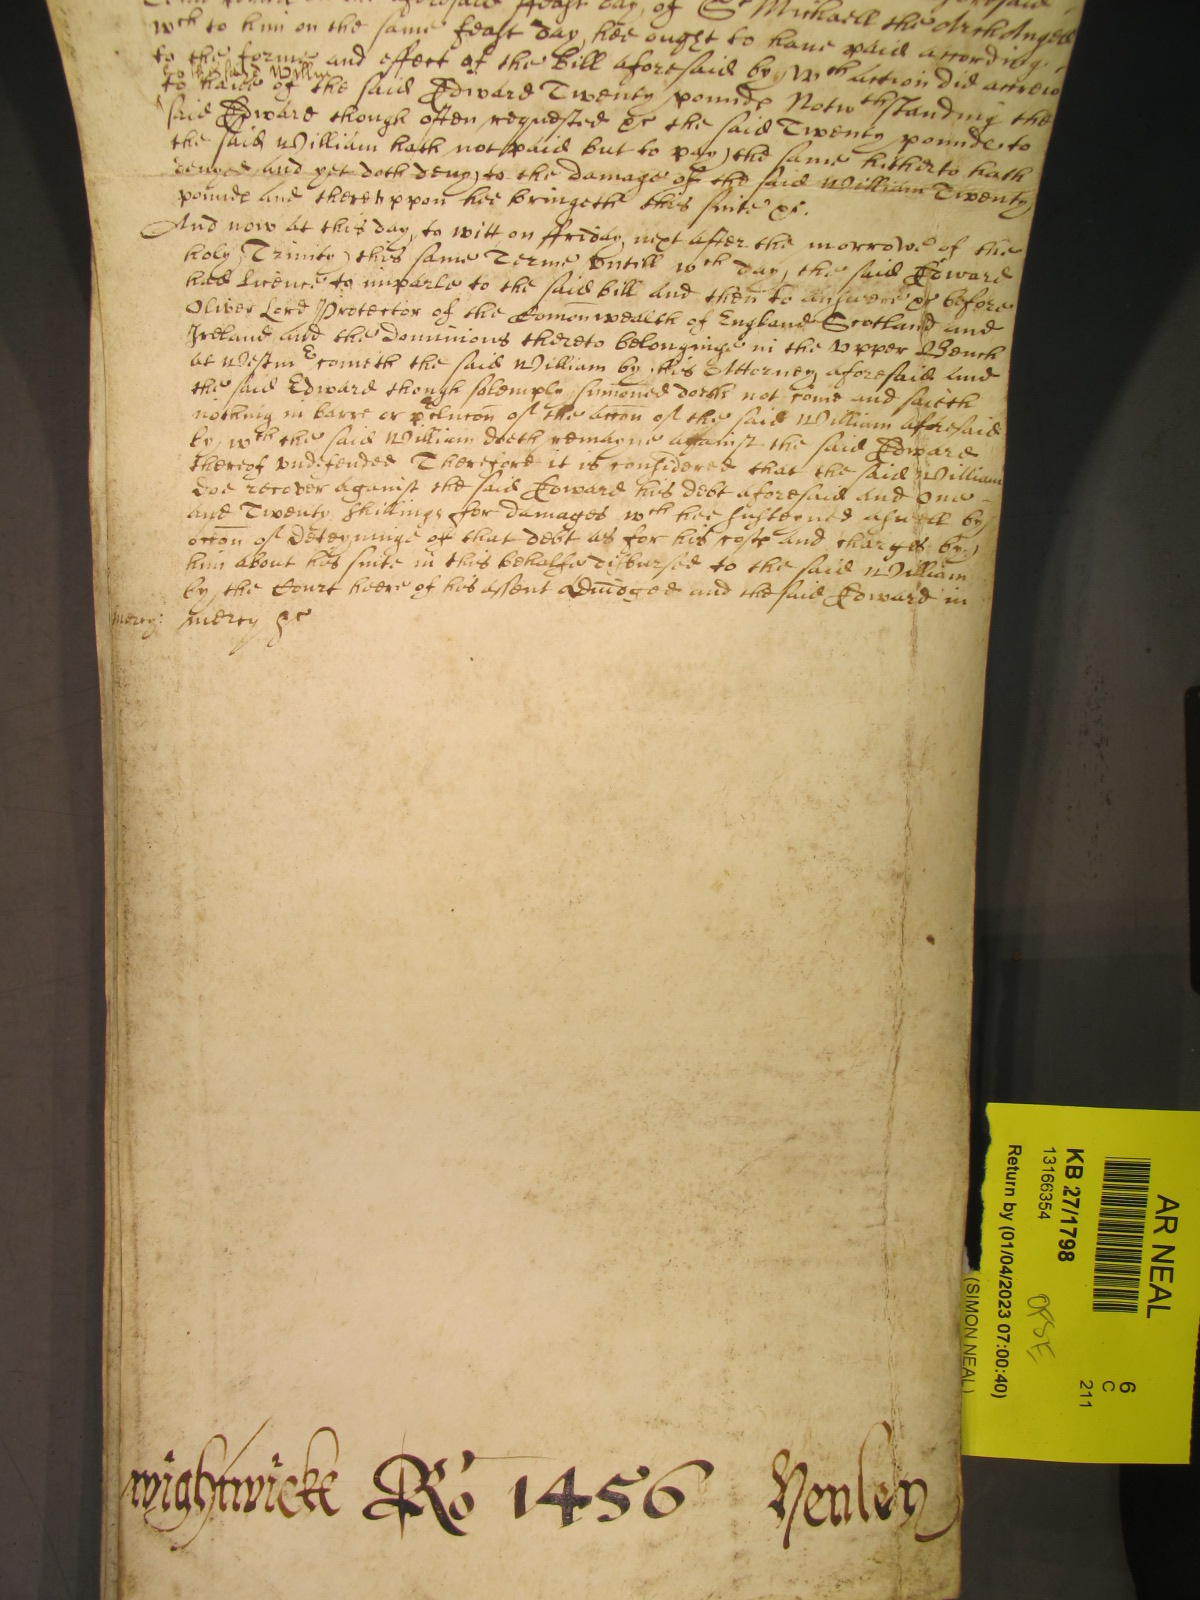 aforesaid ffeast day of St Michaell the Archangell
wch to him on the same feast day hee ought to have paid according
to the forme and effect of the Bill aforesaid by wch action did accrew
to the said William
to have of the said Edward Twenty pounds Notwthstanding the
said Edward though often requested &c the said Twenty pounds to
the said William hath not paid but to pay the same hitherto hath
denyed and yet doth deny to the damage of the said William Twenty
pounds and thereuppon hee bringeth this suite &c.
And now at this day to witt on ffriday next after the morrowe of the
holy Trinity this same Terme Untill wch day the said Edward
had licence to imparle to the said bill and then to answere &c before
Oliver Lord Protector of the Comonwealth of England Scotland and
Ireland and the Dominions thereto belonginge in the Upper Bench
at Westmr cometh the said William by his Attorney aforesaid And
the said Edward though solemply sumoned doth not come and saieth
nothing in barre or of the accon of the said William aforesaid
by wch the said William doeth remayne against the said Edward
thereof undefended Therefore it is considered that the said William
doe recover against the said Edward his debt aforesaid and One
and Twenty shillings for damages wch hee susteyned aswell by
occon of Deteyninge of that debt as for his costs and charges by
him about his suite in this behalfe disbursed to the said William
by the Court heere of his assent Adiudged and the said Edward in
mercy: mercy &c
wightwicke Ro 1456 Henley
AR NEAL
KB 27/1798
13166354
Return by (01/04/2023 07:00:40)
(SIMON NEAL)
6
C
211